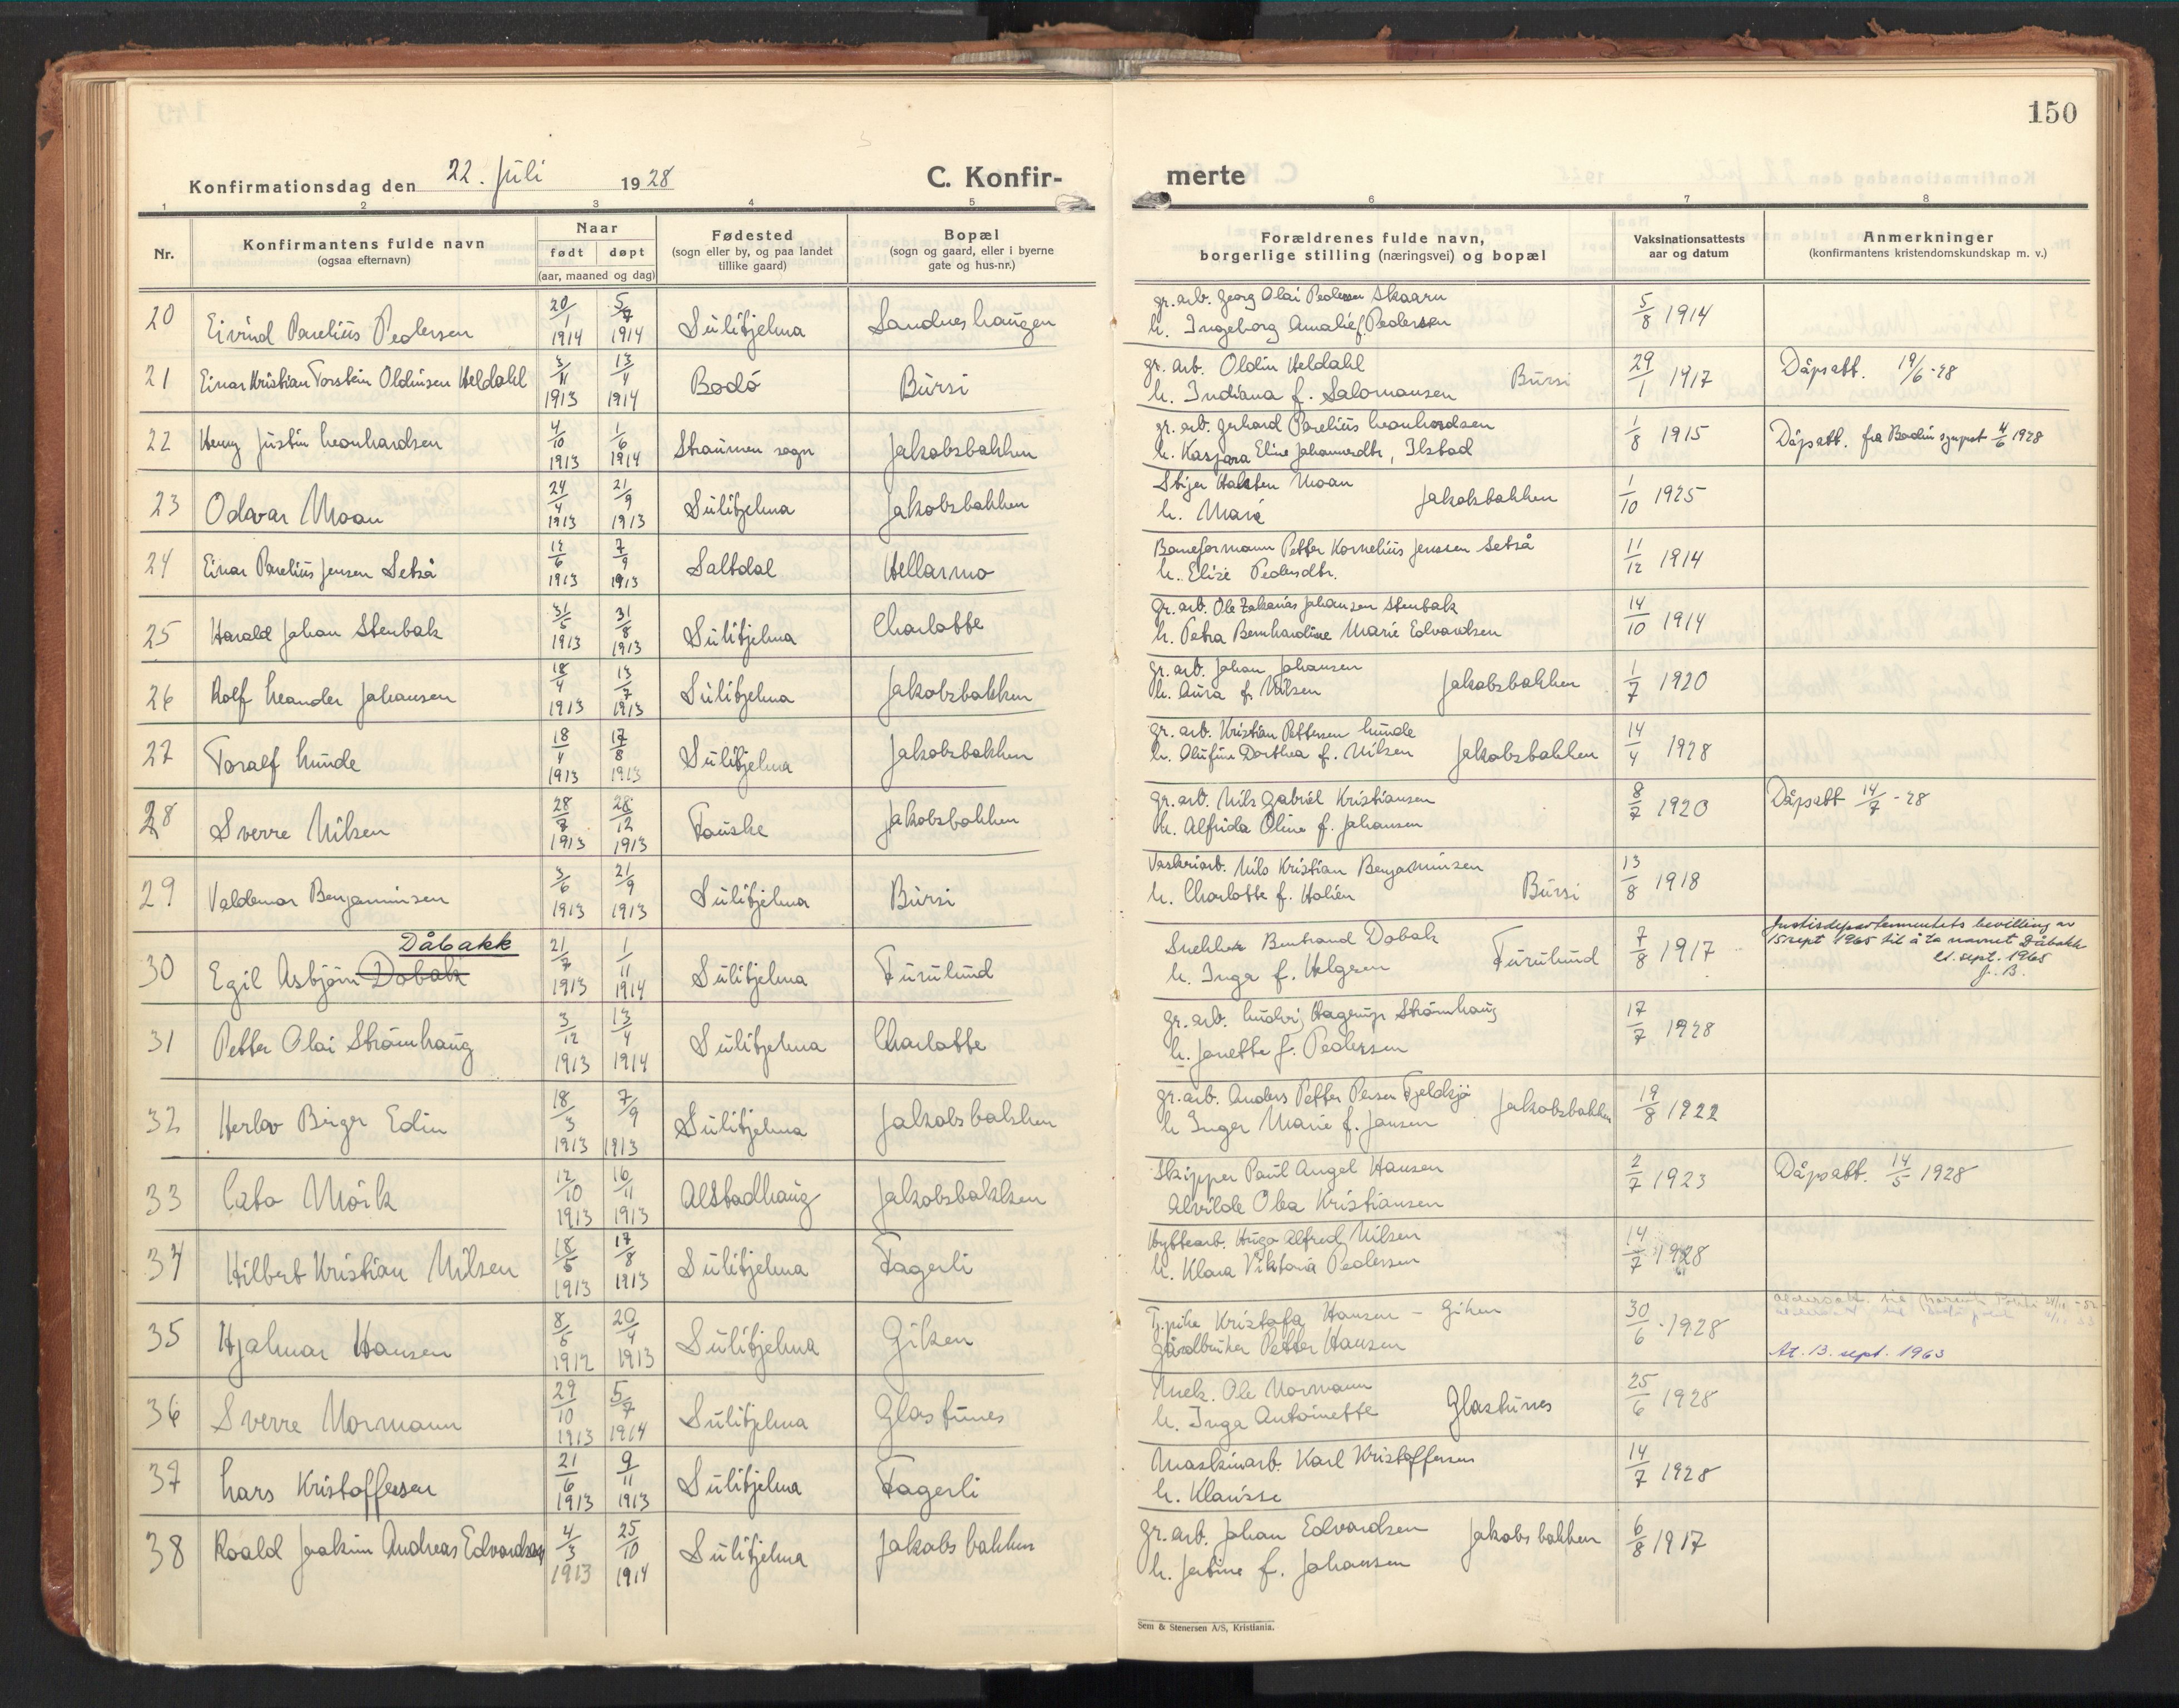 150
Konfirmationsdag den 22. Juli 1928
C. Konfir-
merte
1 2 3 4 5 6 7 8
Nr.
Konfirmantens fulde navn
(ogsaa efternavn)
Naar
født døpt
(aar, maaned og dag)
Fødested
(sogn eller by, og paa landet
tillike gaard)
Bopæl
(sogn og gaard, eller i byerne
gate og hus-nr.)
Forældrenes fulde navn,
borgerlige stilling (næringsvei) og bopæl
Vaksinationsattests
aar og datum
Anmerkninger
(konfirmantens kristendomskundskap m. v.)
20 Eivind Parelius Pedersen 20/1 1914 5/7 1914 Sulitjelma Sandneshaugen
gr. arb. Georg Olai Pedersen Skaarn
h. Ingeborg Amalie f. Pedersen
5/8 1914
21 Einar Kristian Torstein Oldinsen Heldahl 3/11 1913 13/4 1914 Bodö Bursi
gr. arb. Oldin Heldahl
h. Indiana f. Salomansen Bursi
29/1 1917 Dåpsatt. 19/6-28
22 Henry Justin Leonhardsen 4/10 1913 1/6 1914 Straumen sogn Jakobsbakken
gr. arb. Gerhard Parelius Leonhardsen
h. Kaspara Eline Johannesdtr, Ilstad
1/8 1915 Dåpsatt. fra Bodin sgnpst 4/6 1928
23 Odvar Moan 24/4 1913 21/9 1913 Sulitjelma Jakobsbakken
Stiger Halsten Moan
h. Marie Jakobsbakken
1/10 1925
24 Einar Parelius Jensen Setså 12/6 1913 7/9 1913 Saltdal Hellarmo
Baneformann Petter Kornelius Jenssen Setså
h. Elise Pedersdtr.
11/12 1914
25 Harald Johan Stenbak 31/5 1913 31/8 1913 Sulitjelma Charlotte
gr. arb. Ole Zakarias Johansen Stenbak
h. Petra Bernhardine Marie Edvardsen
14/10 1914
26 Rolf Leander Johansen 18/4 1913 13/7 1913 Sulitjelma Jakobsbakken
gr. arb. Johan Johansen
h. Aura f. Nilsen Jakobsbakken
1/7 1920
27 Toralf Lunde 18/4 1913 17/8 1913 Sulitjelma Jakobsbakken
gr. arb. Kristian Pettersen Lunde
h. Olufine Dorthea f. Nilsen Jakobsbakken
14/4 1928
28 Sverre Nilsen 28/7 1913 28/12 1913 Fauske Jakobsbakken
gr. arb. Nils Gabriel Kristiansen
h. Alfrida Oline f. Johansen
8/7 1920 Dåpsatt 14/7-28
29 Valdemar Benjaminsen 3/6 1913 21/9 1913 Sulitjelma Bursi
Vaskeriarb. Nils Kristian Benjaminsen
h. Charlotte f. Halsen Bursi
13/8 1918
Dåbakk
30 Egil Asbjørn Dobak 21/7 1913 1/11 1914 Sulitjelma Furulund
Snekker Berntrand Dobak
h. Inga f. Helgesen Furulund
7/8 1917
Justisdepartementets bevilling av
15 sept 1965 til å ta navnet Dåbakk
21. sept. 1965
J. B.
31 Petter Olai Strömhaug 3/12 1913 13/4 1914 Sulitjelma Charlotte
gr. arb. Ludvig Hagerup Strömhaug
h. Janette f. Pedersen
17/7 1928
32 Herlov Birger Edin 18/3 1913 7/9 1913 Sulitjelma Jakobsbakken
gr. arb. Anders Petter Persen Fjeldsjö
h Inger Marie f. Jansen Jakobsbakken
19/8 1922
33 Cato Mörk 12/10 1913 16/11 1913 Alstadhaug Jakobsbakken
Skipper Paul Angel Hansen
Alvilde Olea Kristiansen
2/7 1923 Dåpsatt. 14/5 1928
34 Hilbert Kristian Nilsen 18/5 1913 17/8 1913 Sulitjelma Fagerli
Hyttearb. Hugo Alfred Nilsen
h. Klara Viktoria Pedersen
14/7 1928
35 Hjalmar Hansen 8/5 1912 20/4 1913 Sulitjelma Giken
T. pike Kristofa Hansen - Giken
Gårdbruker Petter Hansen
30/6 1928
At. 13. sept. 1963
36 Sverre Normann 29/10 1913 5/7 1914 Sulitjelma Glastunes
Mek. Ole Normann
h. Inga Antoinette Glastunes
25/6 1928
37 Lars Kristoffersen 21/6 1913 9/11 1913 Sulitjelma Fagerli
Maskinarb. Karl Kristoffersen
h. Klarisse
14/7 1928
38 Roald Joakim Andreas Edvardsen 4/3 1913 25/10 1914 Sulitjelma Jakobsbakken
gr. arb. Johan Edvardsen Jakobsbakken
h. Jertine f. Johansen
6/8 1917
Sem & Stenersen A/S, Kristiania.